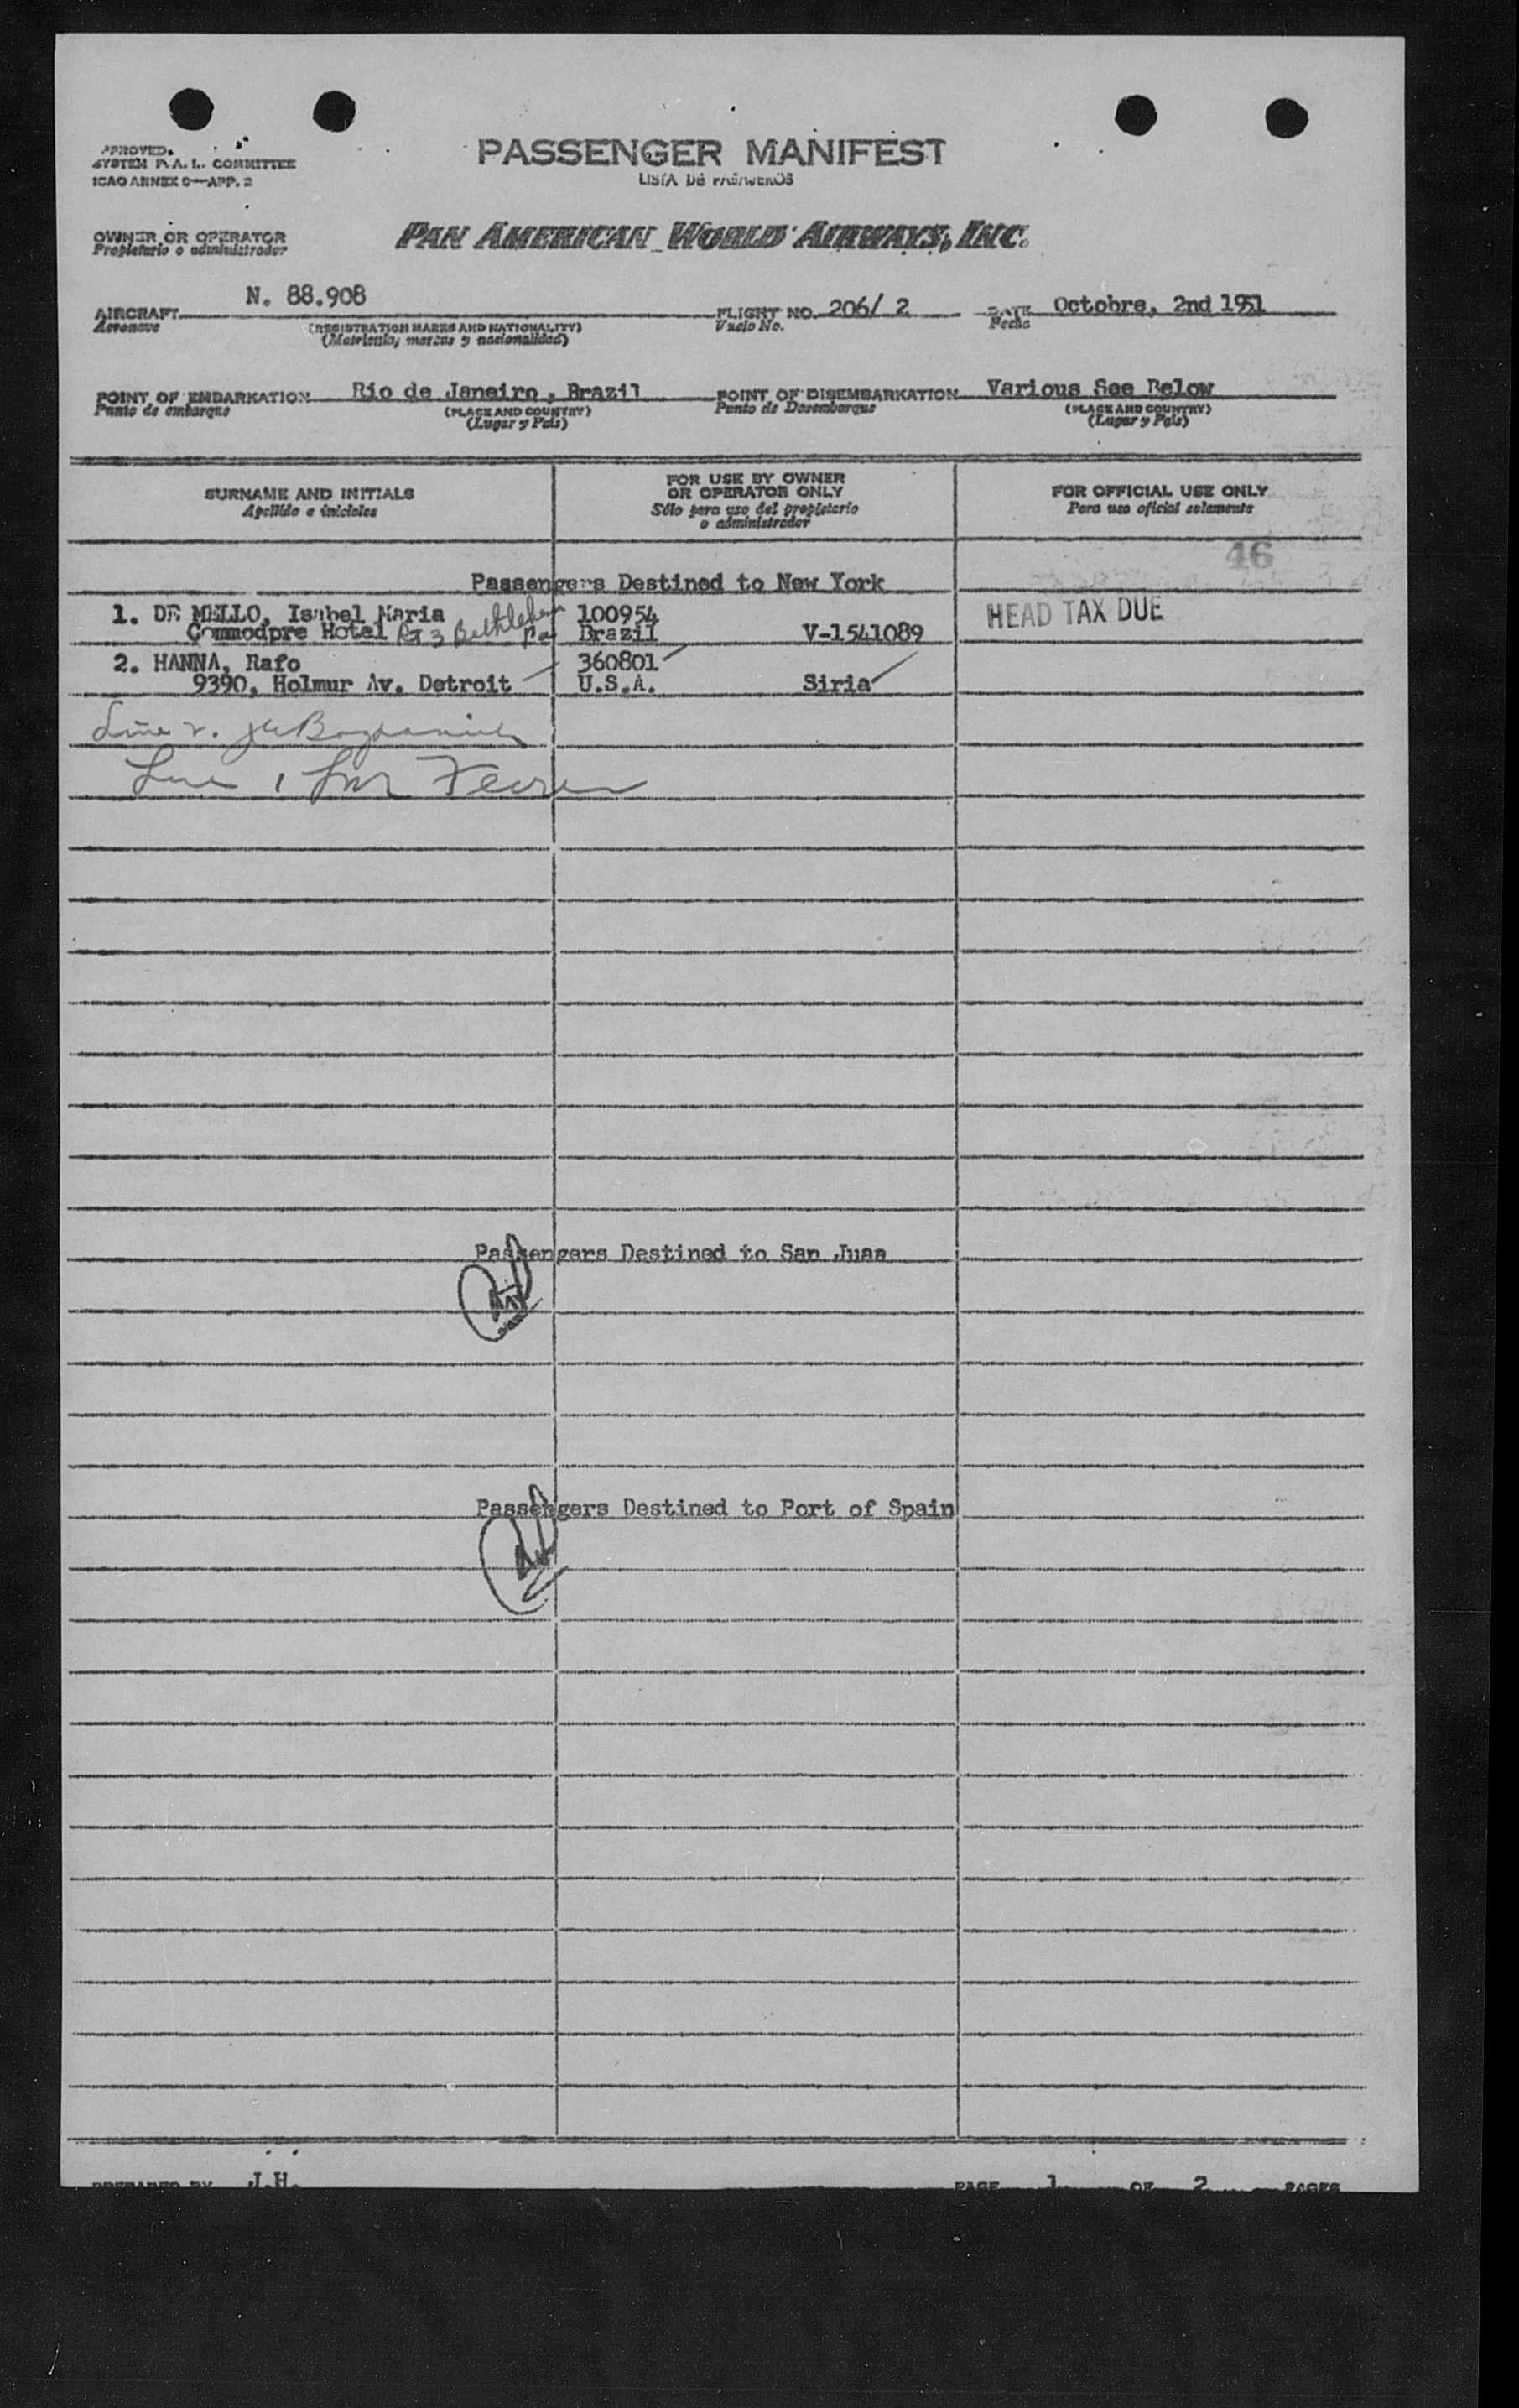 PPROVED.
SYSTEM P. A. L. COMMITTEE
ICAO ANNEX 9—APP. 2
PASSENGER MANIFEST
LISTA DE PASAJEROS
OWNER OR OPERATOR
Propietario o administrador
PAN AMERICAN WORLD AIRWAYS, INC.
AIRCRAFT N. 88.908 FLIGHT NO. 206/ 2 DATE Octobre, 2nd 1951
Aeronave (REGISTRATION MARKS AND NATIONALITY) Vuelo No. Fecha
(Matricula, marcas y nacionalidad)
POINT OF EMBARKATION Rio de Janeiro, Brazil POINT OF DISEMBARKATION Various See Below
Punto de embarque (PLACE AND COUNTRY) Punto de Desembarque (PLACE AND COUNTRY)
(Lugar y Pais) (Lugar y Pais)
SURNAME AND INITIALS
Apellido e iniciales
FOR USE BY OWNER
OR OPERATOR ONLY
Sólo para uso del propietario
o administrador
FOR OFFICIAL USE ONLY
Para uso oficial solamente
46
Passengers Destined to New York
1. DE MELLO, Isabel Maria 100954 HEAD TAX DUE
Commodpre Hotel RT 3 Bethlehem Pa Brazil V-1541089
2. HANNA, Rafo 360801
9390, Holmur Av. Detroit U.S.A. Siria
Line 2.
Line 1
Passengers Destined to San Juan
Passengers Destined to Port of Spain
PREPARED BY J.H. PAGE 1 OF 2 PAGES